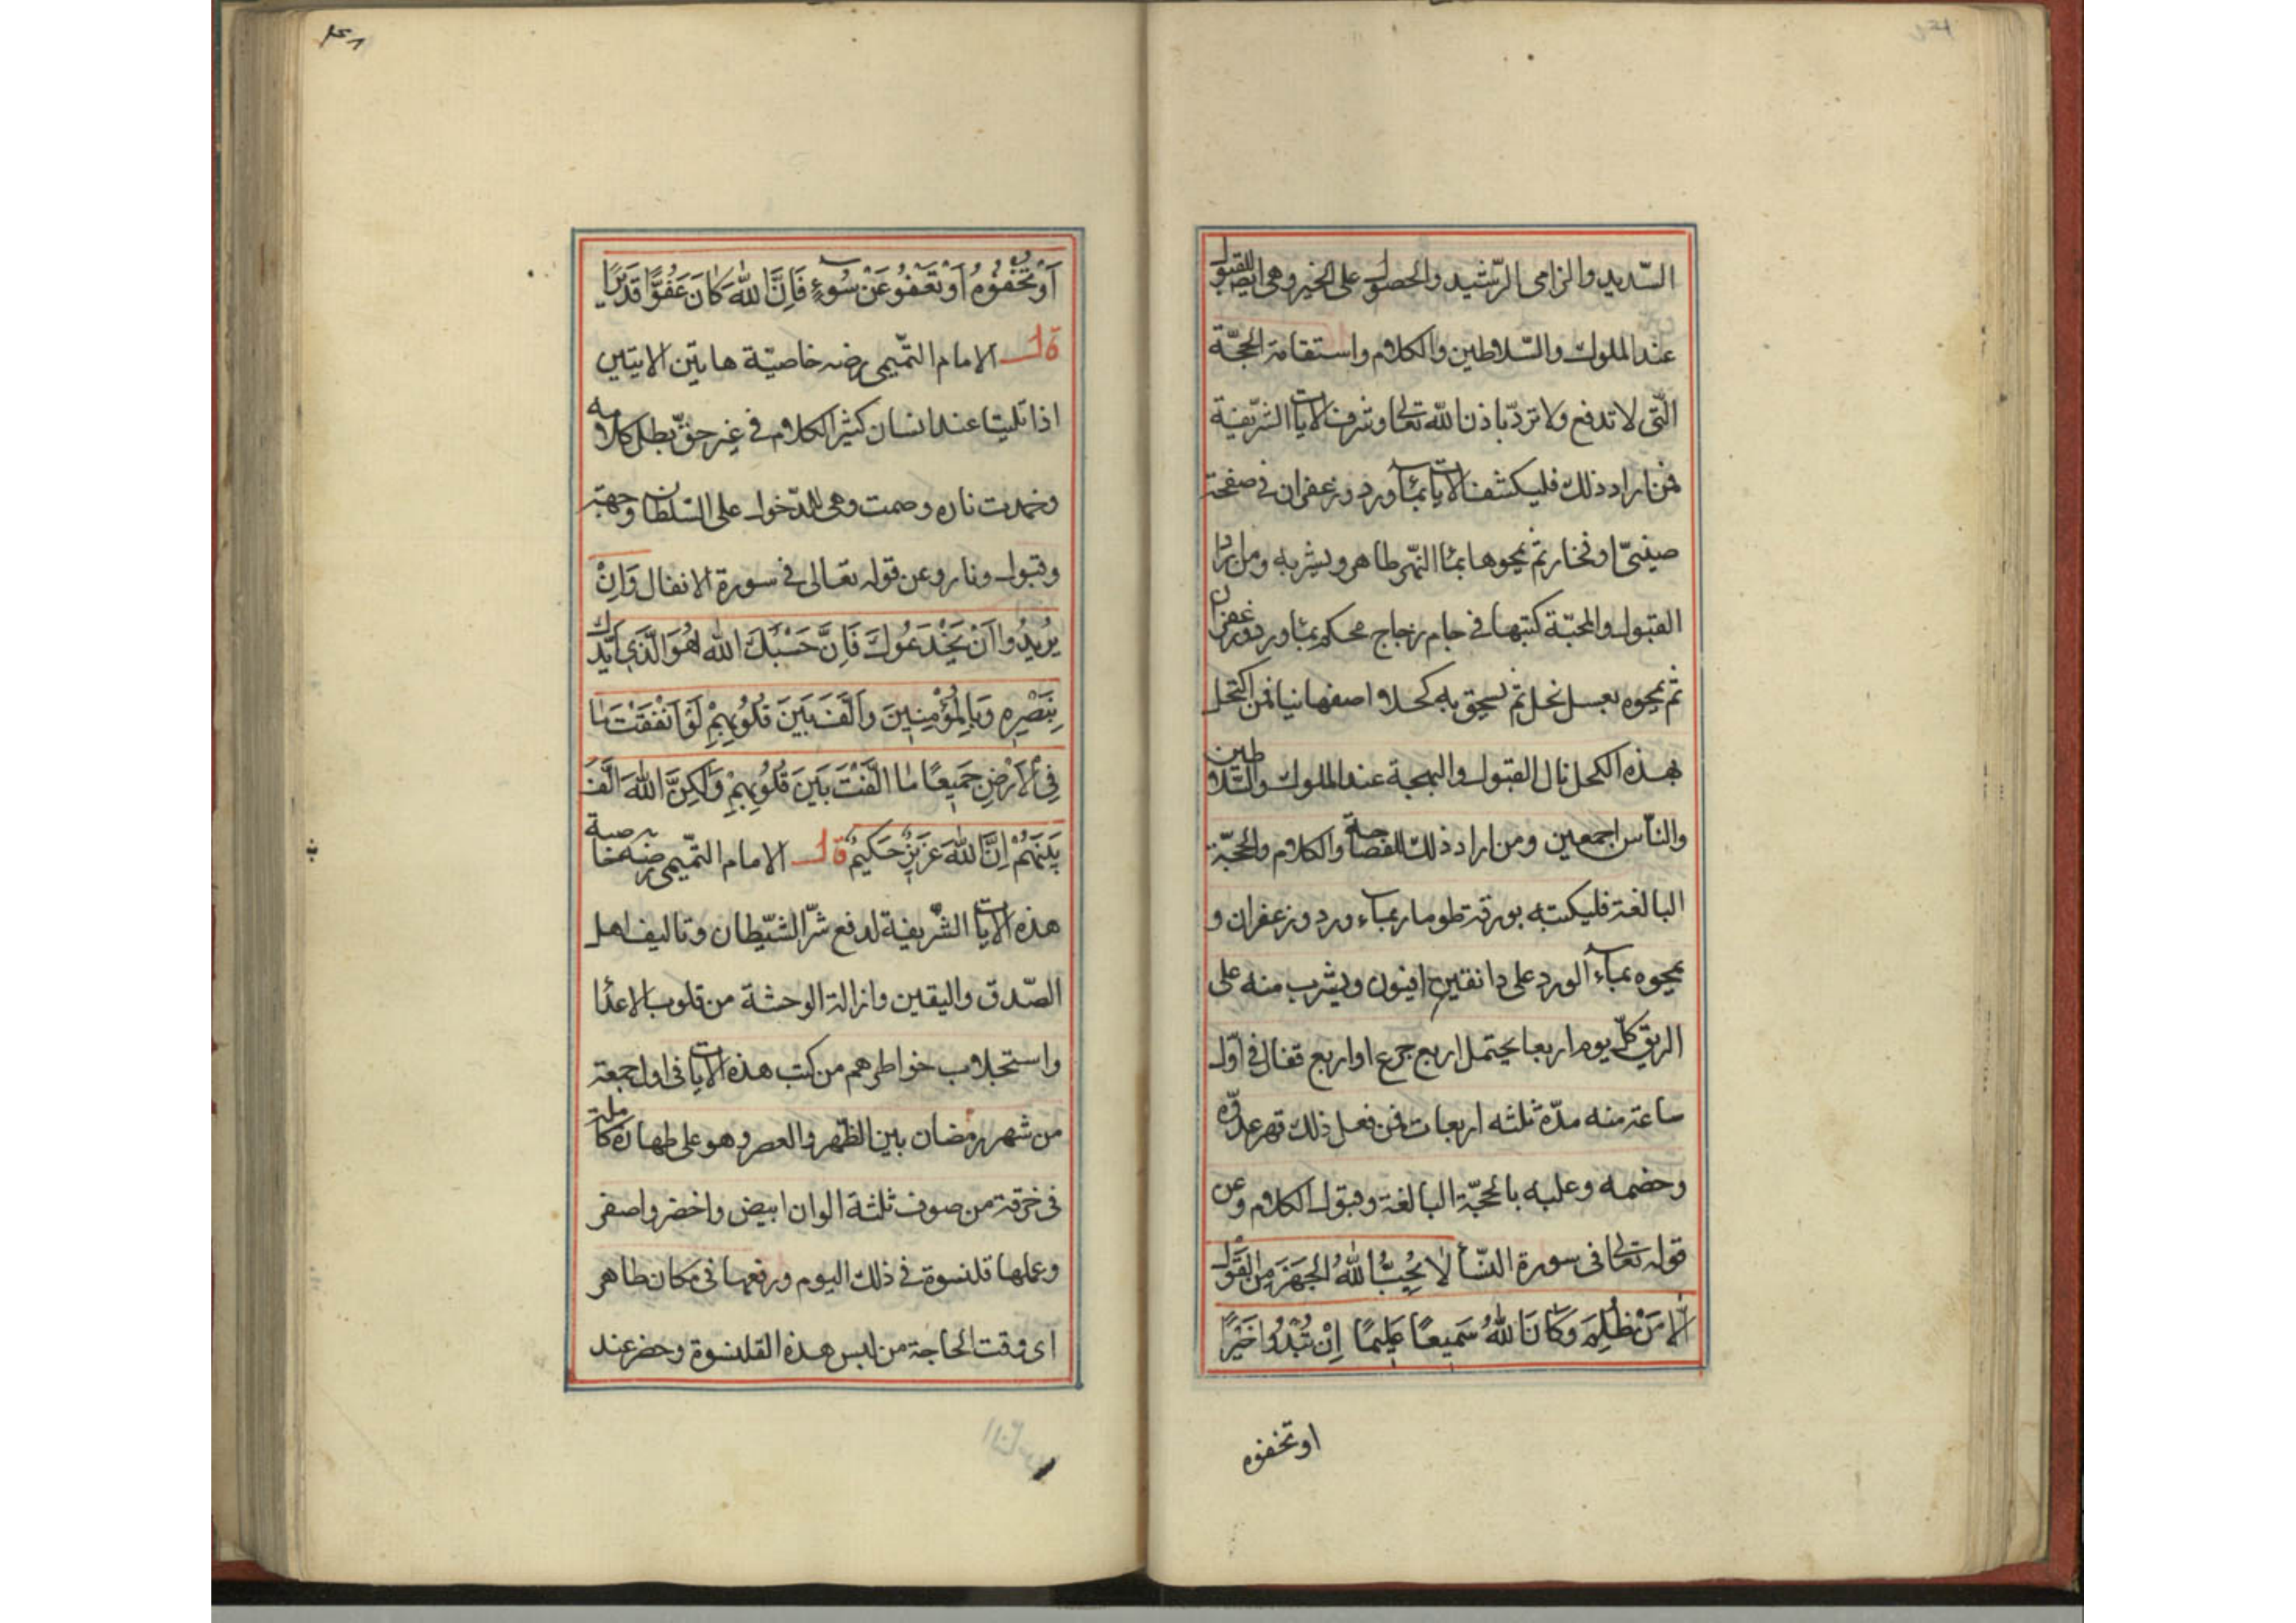 السّديد والرامى الرّشيد والحصول على الخير وهى ايضا للقبول
عند الملوك والسّلاطين والكلام واستقامة الحجّة
الّتى لا تدفع ولا تردّ باذن الله تعالى وشرف الايات الشّريفة
فمن اراد ذلك فليكتب الايات بماء ورد وزعفران فى صفحة
صينىّ او فخار ثم يمحوها بماء النّهر طاهر ويشربه ومن يرد
القبول والمحبّة كتبها فى جام زجاج محكم بماء ورد وزعفران
ثم يمحوه بعسل نحل ثم يسحق به كحلا اصفهانيا فمن اكتحل
بهذه الكحل نال القبول والبهجة عند الملوك والسّلاطين
والنّاس اجمعين ومن اراد ذلك للفصاحة والكلام والحجّة
البالغة فليكتبه بورقة طومار بماء ورد وزعفران و
يمحوه بماء الورد على دانقين افيون ويشرب منه على
الريق كلّ يوم اربعا يحتمل اربع جرع او اربع قفال فى اوّل
ساعة منه مدّة ثلثه اربعات فمن فعل ذلك قهر عدوّه
وخصمه وغلبه بالحجّة البالغة وقبول الكلام وعن
قوله تعالى فى سورة النّساء لَا يُحِبُّ اللهُ الْجَهْرَ مِنَ الْقَوْلِ
اِلَّا مَنْ ظُلِمَ وَكَانَ اللهُ سَمِيعًا عَلِيمًا اِنْ تُبْدُوا خَيْرًا
او تخفوه
اَوْ تُخْفُوهُ اَوْ تَعْفُو عَنْ سُوءٍ فَاِنَّ اللهَ كَانَ عَفُوًّا قَدِيرًا
قال الامام التّميمى رضه خاصيّة هاتين الايتين
اذا تليتا عند انسان كثير الكلام فى غير حقّ بطل كلامه
وخمدت ناره وصمت وهى للدّخول على السّلطان وجهته
وقبول ونار وعن قوله تعالى فى سورة الانفال وَاِنْ
يُرِيدُوا اَنْ يَخْدَعُوكَ فَاِنَّ حَسْبَكَ اللهُ هُوَ الَّذِى اَيَّدَكَ
بِنَصْرِهِ وَبِالْمُؤْمِنِينَ وَاَلَّفَ بَيْنَ قُلُوبِهِمْ لَوْ اَنْفَقْتَ مَا
فِى الْاَرْضِ جَمِيعًا مَا اَلَّفْتَ بَيْنَ قُلُوبِهِمْ وَلَكِنَّ اللهَ اَلَّفَ
بَيْنَهُمْ اِنَّ اللهَ عَزِيزٌ حَكِيمٌ قال الامام التّميمى رضه خاصية
هذه الايات الشّريفة لدفع شرّ الشّيطان وتاليف اهل
الصّدق واليقين وازالة الوحشة من قلوب الاعداء
واستجلاب خواطرهم من كتب هذه الايات فى اول جمعة
من شهر رمضان بين الظّهر والعصر وهو على طهارة كاملة
فى خرقة من صوف ثلثة الوان ابيض واخضر واصفر
وعملها قلنسوة فى ذلك اليوم ورفعها فى مكان طاهر
اى وقت الحاجة من لبس هذه القلنسوة وحضر عند